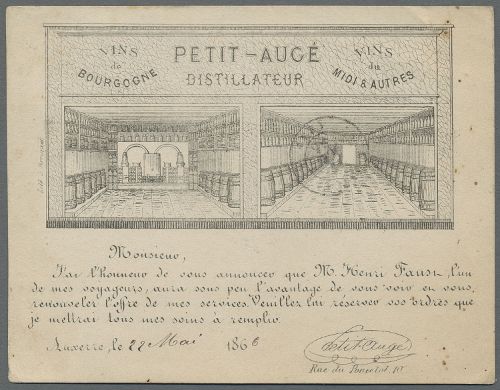 VINS de BOURGOGNE
PETIT-AUGÉ
DISTILLATEUR
VINS du MIDI & AUTRES
Monsieur,
J'ai l'honneur de vous annoncer que M. Henri Faust, l'un
de mes voyageurs, aura sous peu l'avantage de vous voir en vous
renouveler l'offre de mes services. Veuillez lui réserver vos ordres que
je mettrai tous mes soins à remplir.
Auxerre, le 22 Mai 1866
Petit-Augé
Rue du